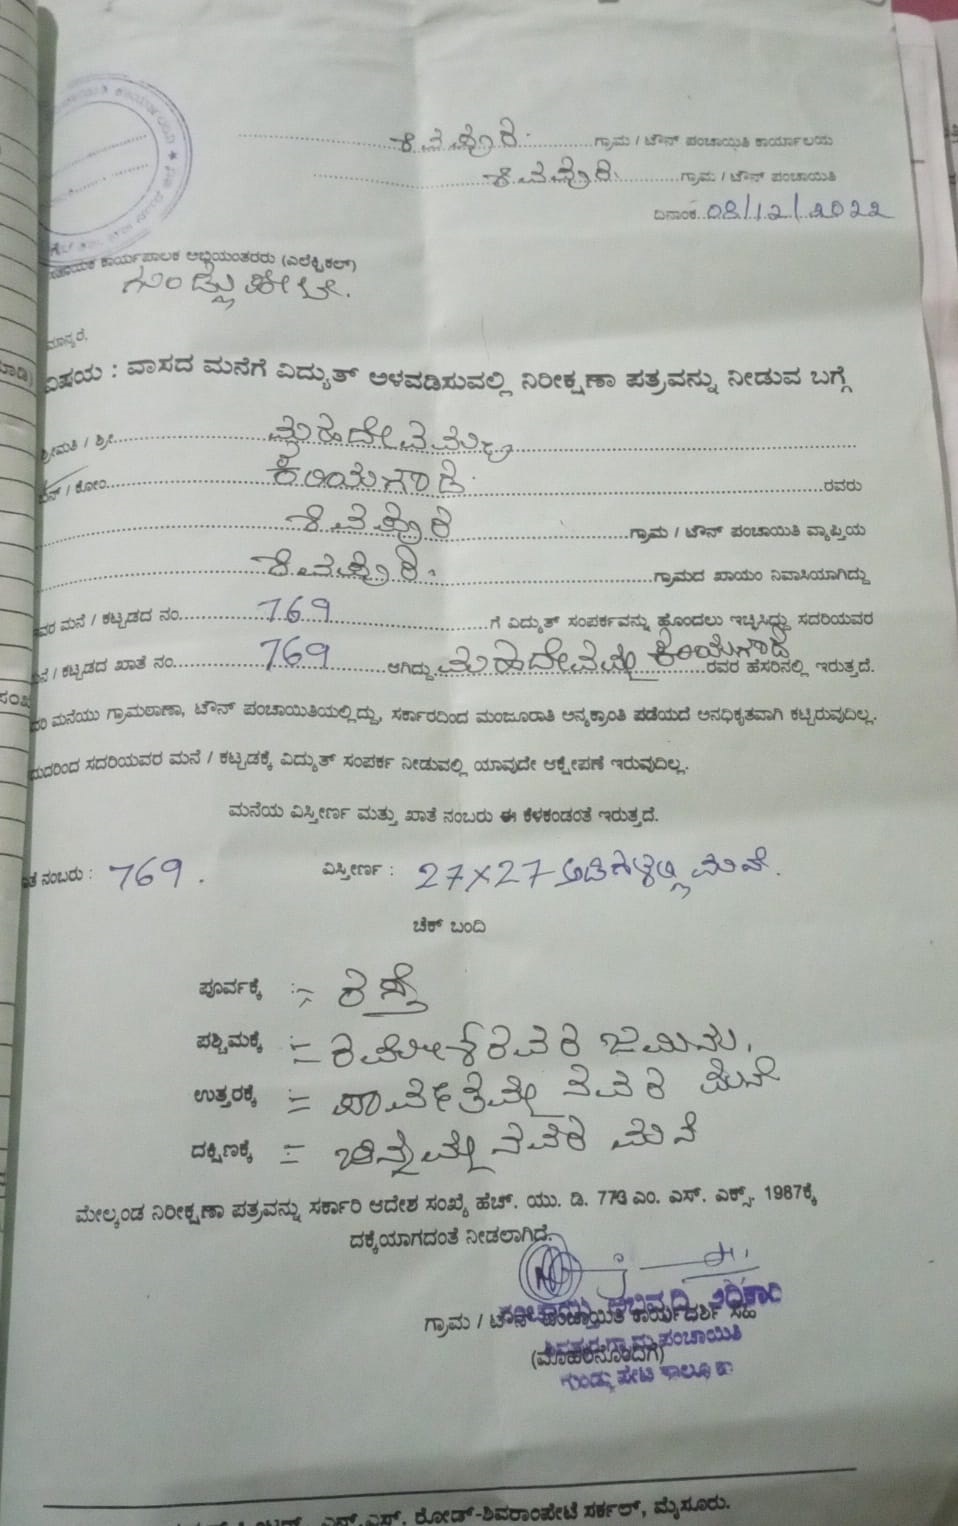 ಗ್ರಾಮ / ಟೌನ್ ಪಂಚಾಯಿತಿ ಕಾರ್ಯಾಲಯ
ಗ್ರಾಮ / ಟೌನ್ ಪಂಚಾಯಿತಿ
ದಿನಾಂಕ 08/12/2022
ಕಾರ್ಯಪಾಲಕ ಅಭಿಯಂತರರು (ಎಲೆಕ್ಟ್ರಿಕಲ್)
ಗುಂಡ್ಲುಪೇಟೆ.
ಮಾನ್ಯರೆ,
ವಿಷಯ : ವಾಸದ ಮನೆಗೆ ವಿದ್ಯುತ್ ಅಳವಡಿಸುವಲ್ಲಿ ನಿರೀಕ್ಷಣಾ ಪತ್ರವನ್ನು ನೀಡುವ ಬಗ್ಗೆ
ಶ್ರೀಮತಿ / ಶ್ರೀ ಮಹದೇವಮ್ಮ
/ ಕೋಂ ಕರಿಯಗೌಡ ರವರು
ಗ್ರಾಮ / ಟೌನ್ ಪಂಚಾಯಿತಿ ವ್ಯಾಪ್ತಿಯ
ಗ್ರಾಮದ ಖಾಯಂ ನಿವಾಸಿಯಾಗಿದ್ದು
ಮನೆ / ಕಟ್ಟಡದ ನಂ. 769 ಗೆ ವಿದ್ಯುತ್ ಸಂಪರ್ಕವನ್ನು ಹೊಂದಲು ಇಚ್ಛಿಸಿದ್ದು ಸದರಿಯವರ
/ ಕಟ್ಟಡದ ಖಾತೆ ನಂ. 769 ಆಗಿದ್ದು ಮಹದೇವಮ್ಮ ಕರಿಯಗೌಡ ರವರ ಹೆಸರಿನಲ್ಲಿ ಇರುತ್ತದೆ.
ಮನೆಯು ಗ್ರಾಮಠಾಣಾ, ಟೌನ್ ಪಂಚಾಯಿತಿಯಲ್ಲಿದ್ದು, ಸರ್ಕಾರದಿಂದ ಮಂಜೂರಾತಿ ಅನ್ಯಕ್ರಾಂತಿ ಪಡೆಯದೆ ಅನಧಿಕೃತವಾಗಿ ಕಟ್ಟಿರುವುದಿಲ್ಲ.
ಸದರಿಯವರ ಮನೆ / ಕಟ್ಟಡಕ್ಕೆ ವಿದ್ಯುತ್ ಸಂಪರ್ಕ ನೀಡುವಲ್ಲಿ ಯಾವುದೇ ಆಕ್ಷೇಪಣೆ ಇರುವುದಿಲ್ಲ.
ಮನೆಯ ವಿಸ್ತೀರ್ಣ ಮತ್ತು ಖಾತೆ ನಂಬರು ಈ ಕೆಳಕಂಡಂತೆ ಇರುತ್ತದೆ.
ನಂಬರು : 769. ವಿಸ್ತೀರ್ಣ : 27×27 ಅಡಿಗಳಲ್ಲಿ ಮನೆ.
ಚೆಕ್ ಬಂದಿ
ಪೂರ್ವಕ್ಕೆ := ರಸ್ತೆ
ಪಶ್ಚಿಮಕ್ಕೆ = ರಮೇಶರವರ ಜಮೀನು.
ಉತ್ತರಕ್ಕೆ = ಪಾರ್ವತಮ್ಮ ನವರ ಮನೆ
ದಕ್ಷಿಣಕ್ಕೆ = ಚಿನ್ನಮ್ಮ ನವರ ಮನೆ
ಮೇಲ್ಕಂಡ ನಿರೀಕ್ಷಣಾ ಪತ್ರವನ್ನು ಸರ್ಕಾರಿ ಆದೇಶ ಸಂಖ್ಯೆ ಹೆಚ್. ಯು. ಡಿ. 773 ಎಂ. ಎಸ್. ಎಕ್ಸ್. 1987ಕ್ಕೆ
ದಕ್ಕೆಯಾಗದಂತೆ ನೀಡಲಾಗಿದೆ.
ಗ್ರಾಮ / ಟೌನ್ ಪಂಚಾಯಿತಿ ಕಾರ್ಯದರ್ಶಿ ಸಹಿ
(ಮೊಹರಿನೊಂದಿಗೆ)
ಎನ್.ಎಸ್. ರೋಡ್-ಶಿವರಾಂಪೇಟೆ ಸರ್ಕಲ್, ಮೈಸೂರು.